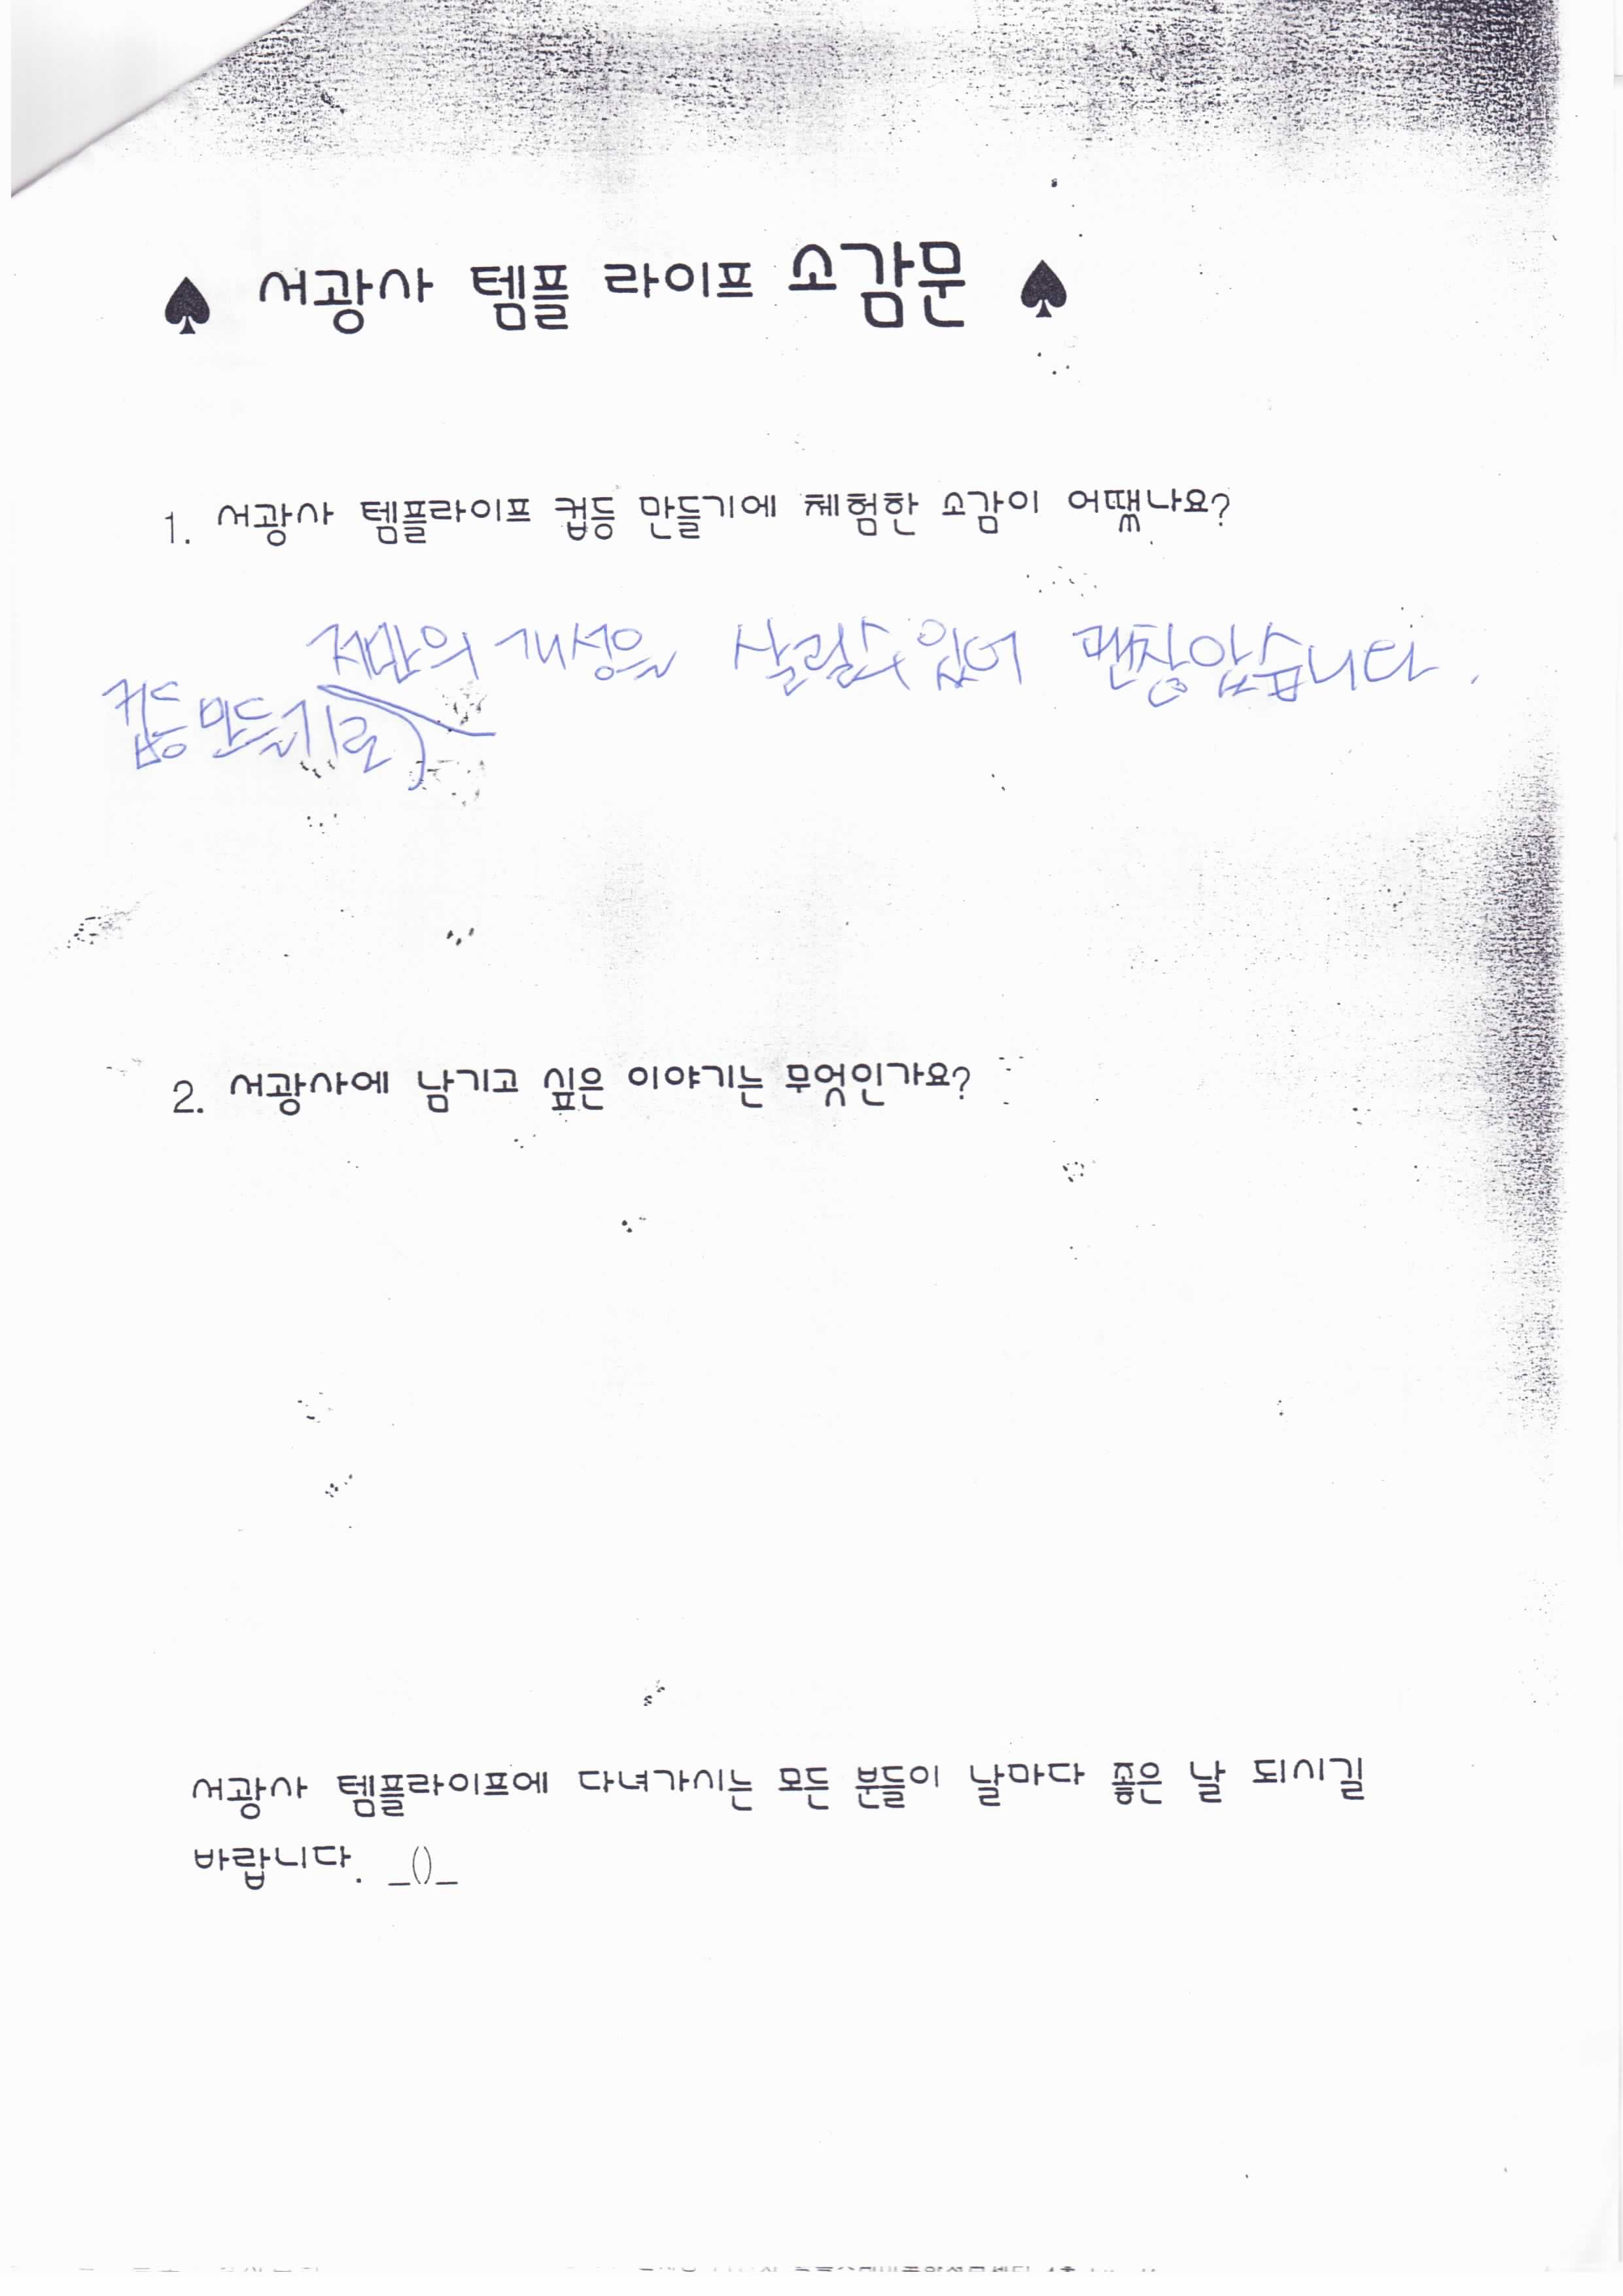 ♠ 서광사 템플 라이프 소감문 ♠
1. 서광사 템플라이프 컵등 만들기에 체험한 소감이 어땠나요?
저만의 개성을 살릴수 있어 괜찮았습니다.
컵등 만들기로
2. 서광사에 남기고 싶은 이야기는 무엇인가요?
서광사 템플라이프에 다녀가시는 모든 분들이 날마다 좋은 날 되시길
바랍니다. _()_